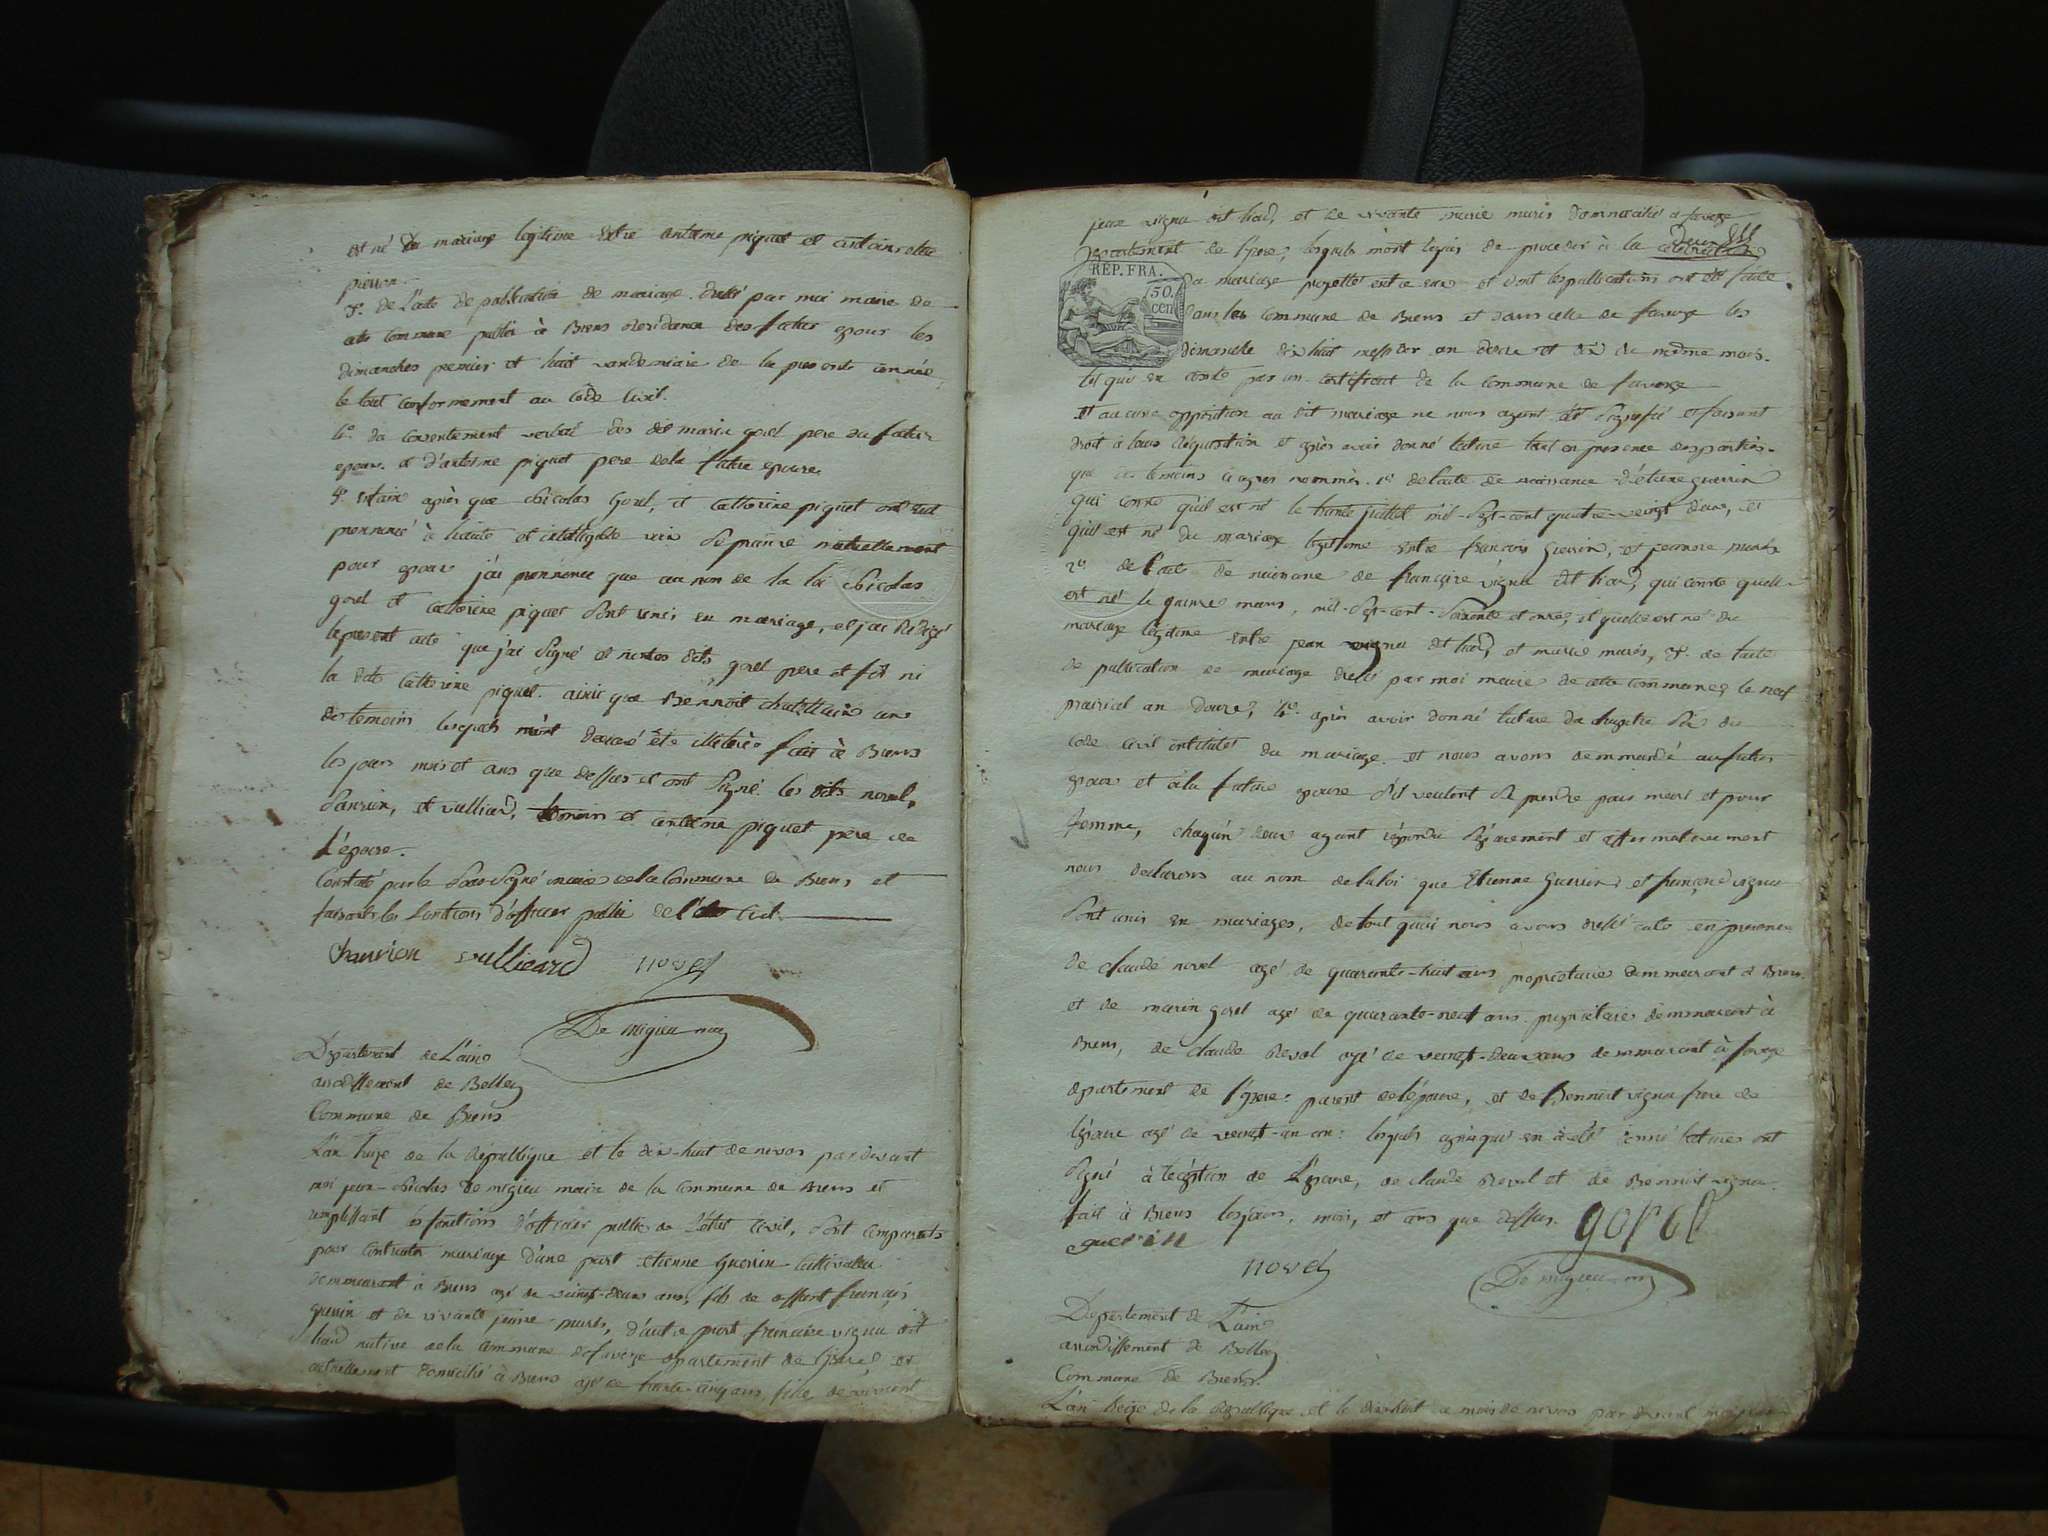 est né du mariage legitime entre antelme piquet et antoinette
pierron.
3°. de l'acte de publication de mariage dressé par moi maire de
cette commune publié à Brens residence des futur epoux les
dimanches premier et huit vandemiaire de la presente année
le tout conformement au code civil.
4°. du consentement verbal des dits marin gorel pere du futur
epoux et d'antelme piquet pere de la future epouse.
5°. enfain après que Nicolas gorel, et catterine piquet ont eut
prononcé à haute et intelligible voix se prendre mutuellement
pour epoux j'ai prononcé que au nom de la loi Nicolas
gorel et catterine piquet sont unis en mariage, et j'ai redigé
le present acte que j'ai signé et non les dits gorel pere et fils ni
la dite catterine piquet. ainsi que Bennoit chatellain un
des temoins lesquels m'ont declaré être illiterés fait à Brens
les jours mois et ans que dessus et ont signé les dits novel,
et vulliard, temoins et antelme piquet pere de
l'epouse.
Constaté par le soussigné maire de la commune de Brens et
faisant les fonctions d'officier public de l'état civil.
vullieard novel
De migieu maire
Département de l'ain
arrondissement de Belley
Commune de Brens
L'an treize de la République et le dix-huit de nivos par devant
moi jean-Nicolas De migieu maire de la commune de Brens et
remplissant les fonctions d'officier public de l'état civil, sont comparuts
pour contracter mariage d'une part etienne Guerrin cultivateur
demmeurant à Brens agé de vaingt-deux ans, fils de deffunt françois
guerin et de vivante jeanne, d'autre part françoise vignu dit
liaud native de la commune de faverge departement de l'isere, et
actuellement domicilié à Brens agé de trante-cinq ans, fille de vivant
jean vignu dit liaud, et de vivante marie domnicilié à faverge
departement de l'isere, lesquels m'ont requis de proceder à la célébration
REP. FRA.
50.
cen
du mariage projetté entre eux et dont les publications ont été faite
dans les commune de Brens et dans celle de faverge les
dimanche dix huit messidor an douze et du même mois.
tel qu'il en conste par un certificat de la commune de faverge
et aucune opposition au dit mariage ne nous ayant été signifié et faisant
droit à leurs requisition et après avoir donné lecture tant en presence des parties.
que des temoins ci après nommés. 1° de l'acte de naissance d'étiene guerrin
qui conste qu'il est né le trante juillet mil-sept-cent quatre-veingt deux, et
qu'il est né du mariage legitime entre françois Guerrin, et jeanne
2° de l'acte de naissance de françoise vignu dit liaud, qui conste quelle
est né le quinze mars, mil-sept-cent-soixante et onze, et quelle est né du
mariage légitime entre jean vignu dit liaud, et marie, 3°. de l'acte
de publication de mariage dressé par moi maire de cette commune, le neuf
prairial an douze, 4°. après avoir donné lecture du chapitre six du
code civil intitulés du mariage. et nous avons demmandé au futur
epoux et à la future epouse s'il veulent se prendre pour mari et pour
femme, chaqu'un deux ayant répondu séparement et affirmativement
nous declarons au nom de la loi que Etienne Guerrin et françoise vignu
sont unis en mariages, de tout quoi nous avons dressé acte en presence
de claude novel agé de quarante-huit ans propriétaire demmeurant à Brens
et de marin gorel agé de quarante-neuf ans proprietaire demmeurant à
Brens, de claude Revol agé de veingt-deux ans demmeurant à faverge
departement de l'isere. parent de l'epouse, et de Bennoit vignu frere de
l'epouse agé de veingt-un an: lesquels après qu'il en a été donné lectures ont
signé à l'éxeption de l'epouse, de claude Revol et de Bennoit vignu.
fait à Brens les jours, mois, et ans que dessus. gorel
guerin
novel
De migieu m
Departement de l'ain
arrondissement de Belley
Commune de Brens.
L'an treize de la République et le dix-huit du mois de nivos par devant moi jean